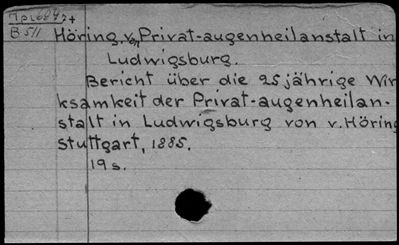 B 511
Höring, von Privat-augenheilanstalt in
Ludwigsburg.
Bericht über die 25jährige Wir
ksamkeit der Privat-augenheilan-
stalt in Ludwigsburg von v. Höring
Stuttgart, 1885.
19 s.